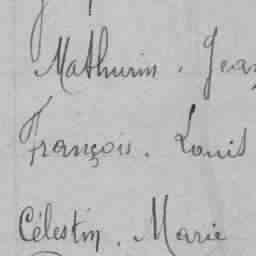 Mathurin. Jean
François. Louis
Célestin. Marie